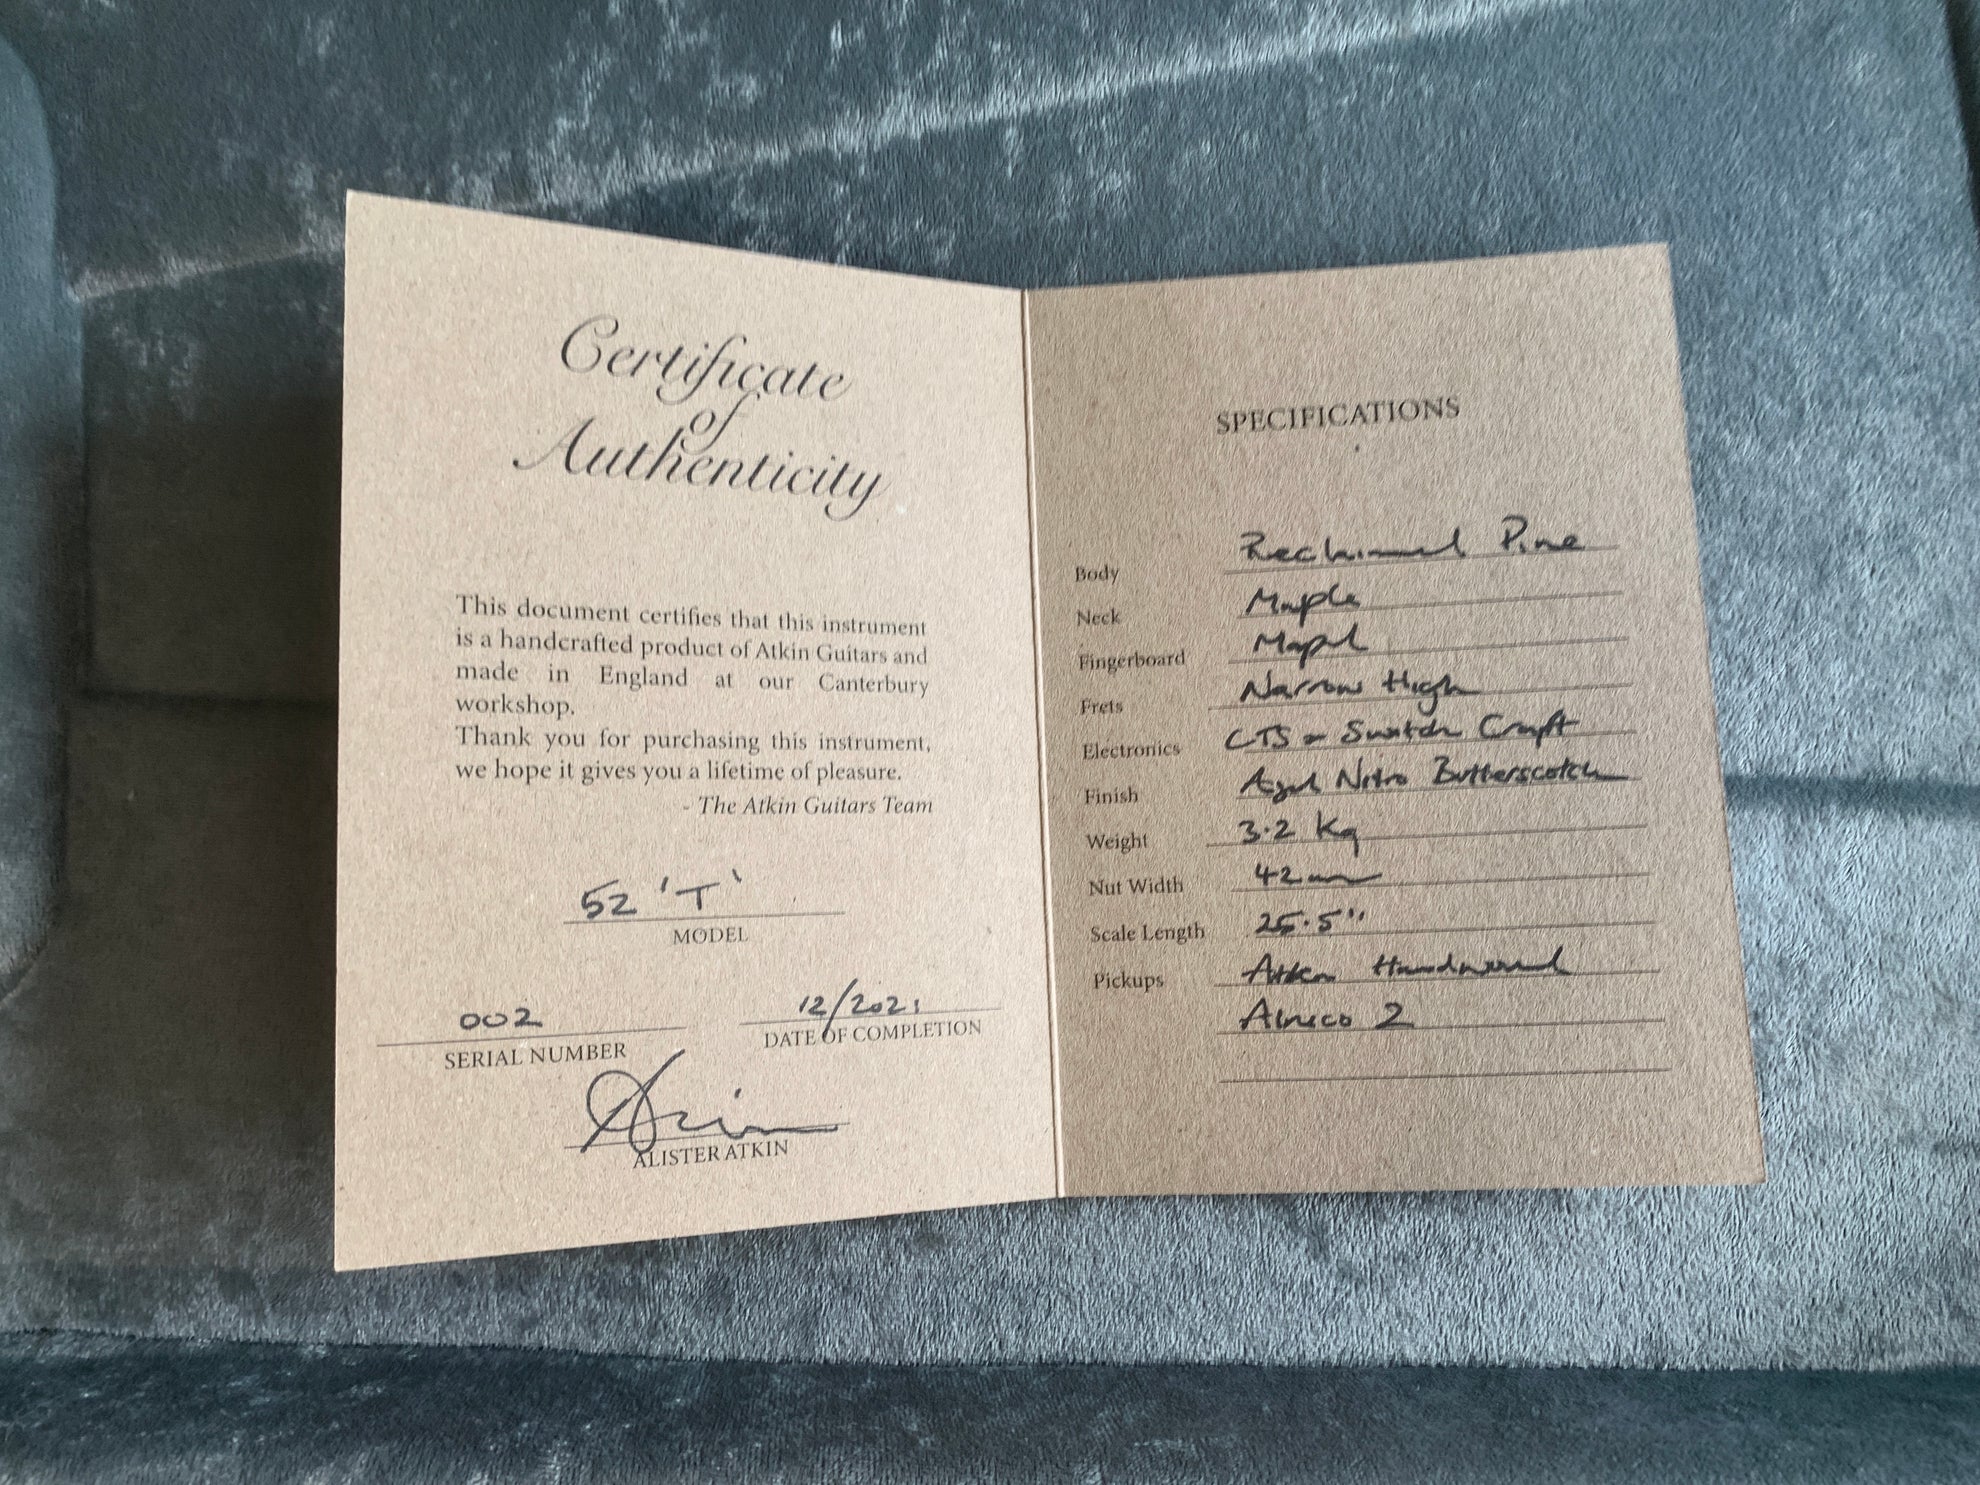 Certificate
of
Authenticity
This document certifies that this instrument
is a handcrafted product of Atkin Guitars and
made in England at our Canterbury
workshop.
Thank you for purchasing this instrument,
we hope it gives you a lifetime of pleasure.
- The Atkin Guitars Team
52 'T'
MODEL
002
SERIAL NUMBER
12/2021
DATE OF COMPLETION
ALISTER ATKIN
SPECIFICATIONS
Body Reclaimed Pine
Neck Maple
Fingerboard Maple
Frets Narrow High
Electronics CTS Switch Craft
Finish Aged Nitro Butterscotch
Weight 3.2 Kg
Nut Width 42mm
Scale Length 25.5"
Pickups Atkin Handwound
Alnico 2